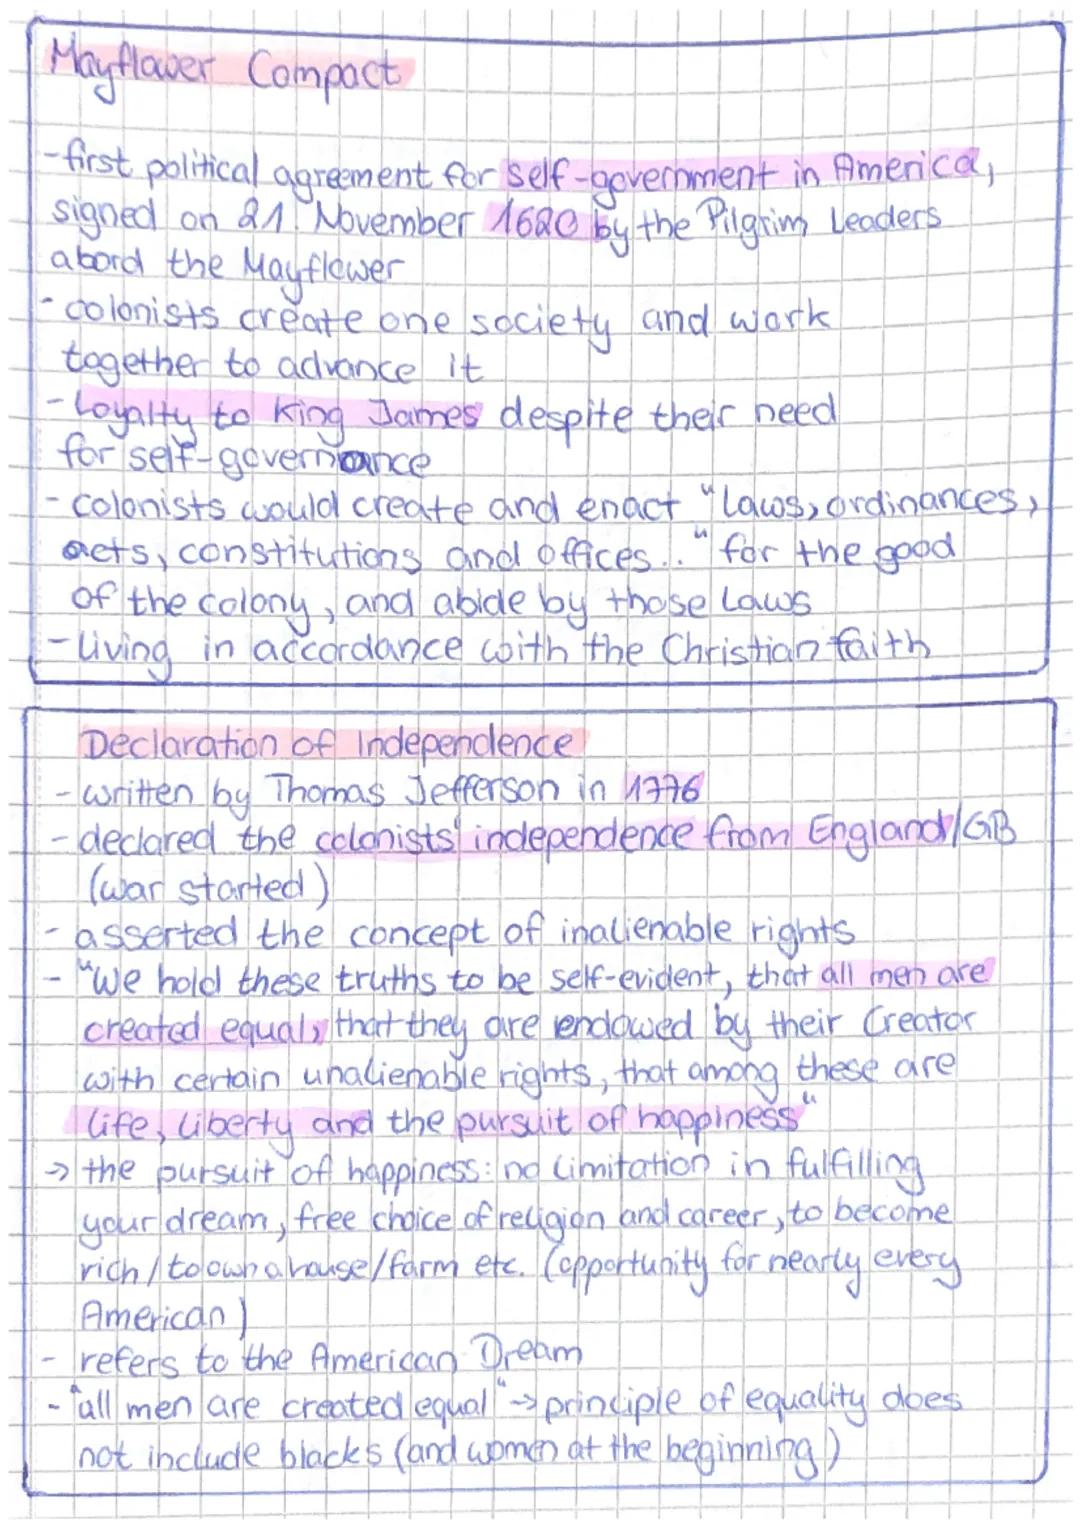 Mayflower Compact
-first political agreement for self-government in America,
signed on 21. November 1620 by the Pilgrim Leaders
abord the Mayflower
- colonists create one society and work
together to advance it
- Loyalty to King James despite their need
for self-governance
- colonists would create and enact "laws, ordinances,
acts, constitutions and offices.." for the good
of the colony, and abide by those laws
- living in accordance with the Christian faith
Declaration of Independence
- written by Thomas Jefferson in 1776
- declared the colonists' independence from England/GB
(war started)
- asserted the concept of inalienable rights
- "We hold these truths to be self-evident, that all men are
created equal, that they are endowed by their Creator
with certain unalienable rights, that among these are
life, liberty and the pursuit of happiness"
→ the pursuit of happiness: no limitation in fulfilling
your dream, free choice of religion and career, to become
rich/to own a house/farm etc. (opportunity for nearly every
American)
- refers to the American Dream
- "all men are created equal" → principle of equality does
not include blacks (and women at the beginning)